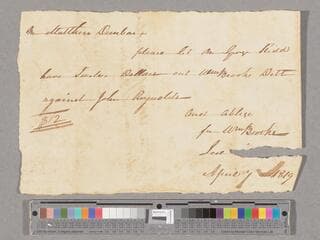 Mr Matthew Dunbar
please let Mr Geog Kidd
have Twelve Dollars out Wm Brooks Dett
against John Reynolds
$12
And oblige
for Wm Brooks
April 7 1819